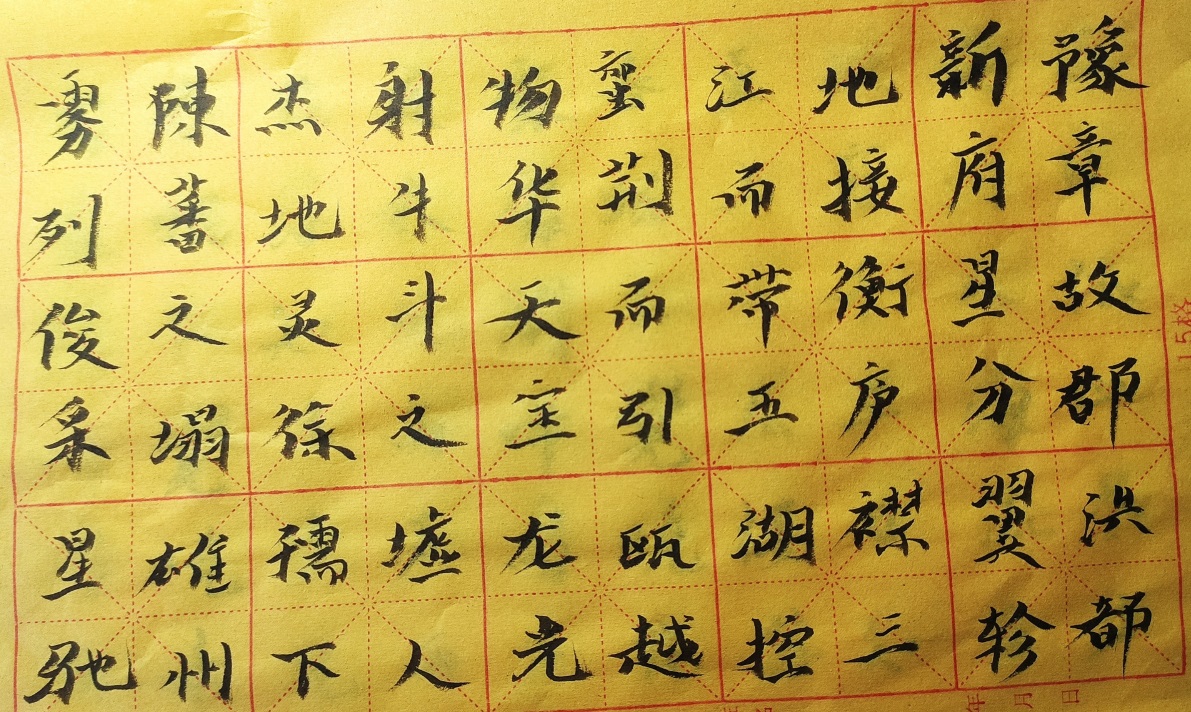 豫章故郡洪都
新府星分翼轸
地接衡庐襟三
江而带五湖控
蛮荆而引瓯越
物华天宝龙光
射牛斗之墟人
杰地灵徐孺下
陈蕃之塌雄州
雾列俊采星驰
15格
年 月 日